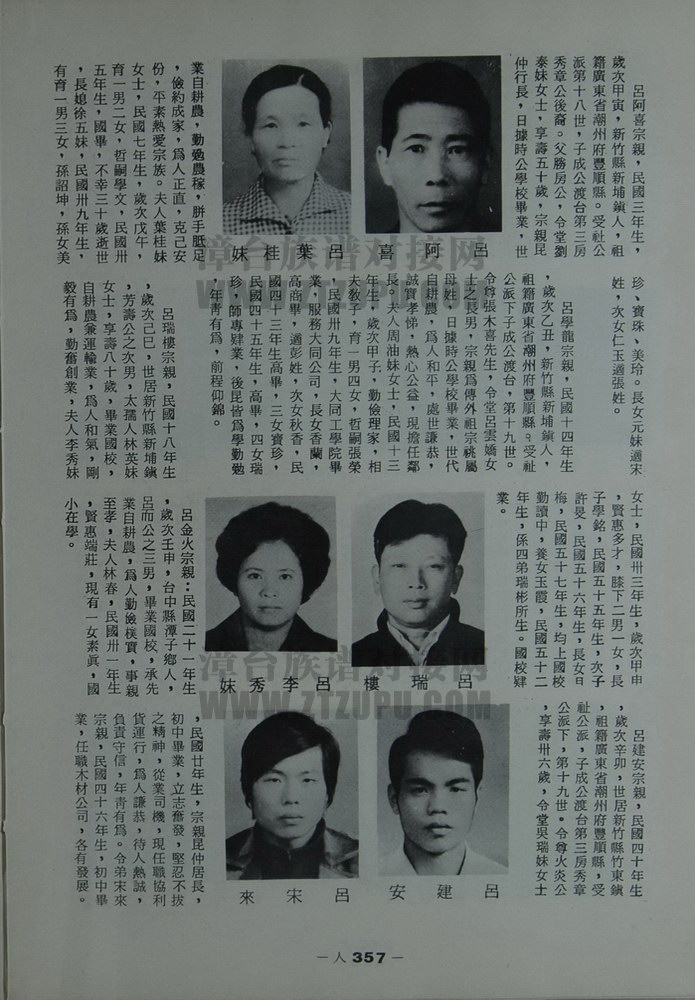 呂阿喜宗親，民國三年生，
歲次甲寅，新竹縣新埔鎮人，祖
籍廣東省潮州府豐順縣。受祉公
派第十八世，子成公渡台第三房
秀章公後裔。父勝房公，令堂劉
泰妹女士，享壽五十歲，宗親昆
仲行長，日據時公學校畢業，世
呂阿喜
呂葉桂妹
業自耕農，勤勉農稼，胼手胝足
，儉約成家，為人正直，克己安
份，平素熱愛宗族。夫人葉桂妹
女士，民國七年生，歲次戊午，
育一男二女，哲嗣學文，民國卅
五年生，國畢，不幸三十歲逝世
，長媳徐五妹，民國卅九年生，
有育一男三女，孫詔坤，孫女美
珍、寶珠、美玲。長女元妹適宋
姓，次女仁玉適張姓。
呂學龍宗親，民國十四年生
，歲次乙丑，新竹縣新埔鎮人，
祖籍廣東省潮州府豐順縣。受祉
公派下子成公渡台，第十九世。
令尊張木喜先生，令堂呂雲嬌女
士之長男，宗親為傳外祖宗祧屬
母姓，日據時公學校畢業，世代
自耕農，為人和平，處世謙恭，
誠實孝悌，熱心公益，現擔任鄰
長。夫人周油妹女士，民國十三
年生，歲次甲子，勤儉理家，相
夫教子，育一男四女，哲嗣張榮
，民國卅九年生，大同工學院畢
業，服務大同公司，長女香蘭，
高商畢，適彭姓，次女秋香，民
國四十三年生高畢，三女寶珍，
民國四十五年生，高畢，四女瑞
珍，師專肄業，後昆皆為學勤勉
，年靑有為，前程仰錦。
呂瑞樓宗親，民國十八年生
，歲次己巳，世居新竹縣新埔鎮
，芳壽公之次男，太孺人林英妹
女士，享壽八十歲，畢業國校，
自耕農兼運輸業，為人和氣，剛
毅有為，勤奮創業，夫人李秀妹
女士，民國卅三年生，歲次甲申
，賢惠多才，膝下二男一女，長
子學銘，民國五十五年生，次子
許旻，民國五十六年生，長女日
梅，民國五十七年生，均上國校
勤讀中，養女玉霞，民國五十二
年生，孫四弟瑞彬所生。國校肄
業。
呂瑞樓
呂李秀妹
呂金火宗親：民國二十一年生
，歲次壬申，台中縣潭子鄉人，
呂而公之三男，畢業國校，承先
業自耕農，為人勤儉樸實，事親
至孝，夫人林春，民國卅一年生
，賢惠端莊，現有一女素眞，國
小在學。
呂建安宗親，民國四十年生
，歲次辛卯，世居新竹縣竹東鎮
，祖籍廣東省潮州府豐順縣，受
祉公派，子成公渡台第三房秀章
公派下，第十九世。令尊火炎公
，享壽卅六歲，令堂吳瑞妹女士
呂建安
呂宋來
，民國廿年生，宗親昆仲居長，
初中畢業，立志奮發，堅忍不拔
之精神，從業司機，現任職協利
貨運行，為人謙恭，待人熱誠，
負責守信，年靑有為。令弟宋來
宗親，民國四十六年生，初中畢
業，任職木材公司，各有發展。
－人 357－
漳台族谱对接网
WWW.ZTZUPU.COM
漳台族谱对接网
WWW.ZTZUPU.COM